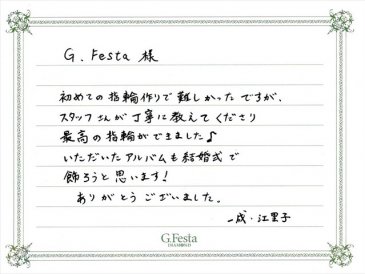 G.Festa 様
初めての指輪作りで難しかったですが、
スタッフさんが丁寧に教えてくださり
最高の指輪ができました♪
いただいたアルバムも結婚式で
飾ろうと思います!
ありがとうございました。
一成・江里子
G.Festa
DIAMOND